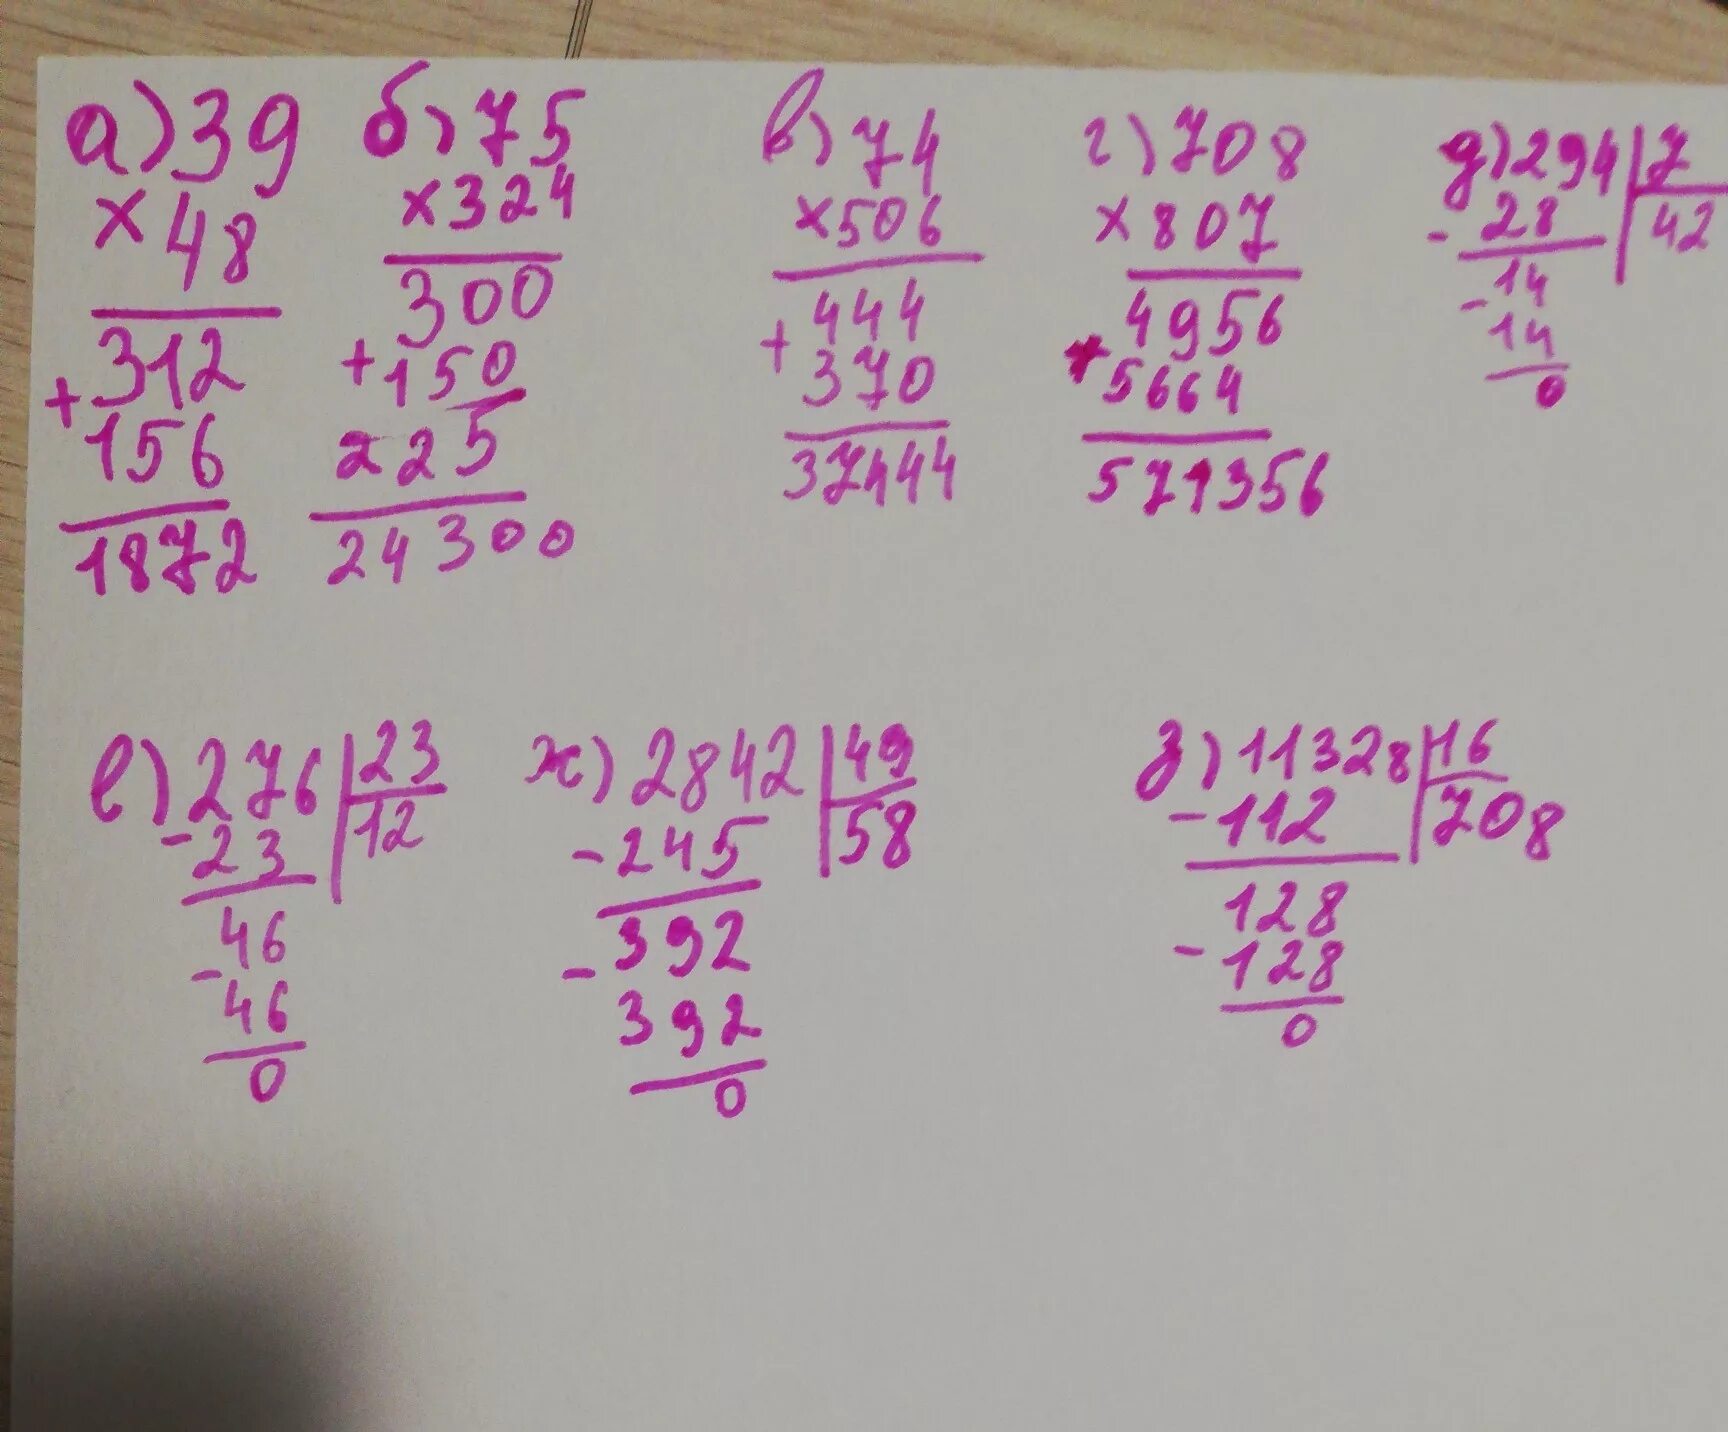 а) 39
× 48
312
+
156
1872
б) 75
× 324
300
+ 150
225
24300
в) 74
× 506
444
+
370
37444
г) 708
× 807
4956
+
5664
571356
д) 294 | 7
- 28 | 42
14
-
14
0
е) 276 | 23
- 23 | 12
46
-
46
0
ж) 2842 | 49
- 245 | 58
392
-
392
0
з) 11328 | 16
- 112 | 708
128
- 128
0